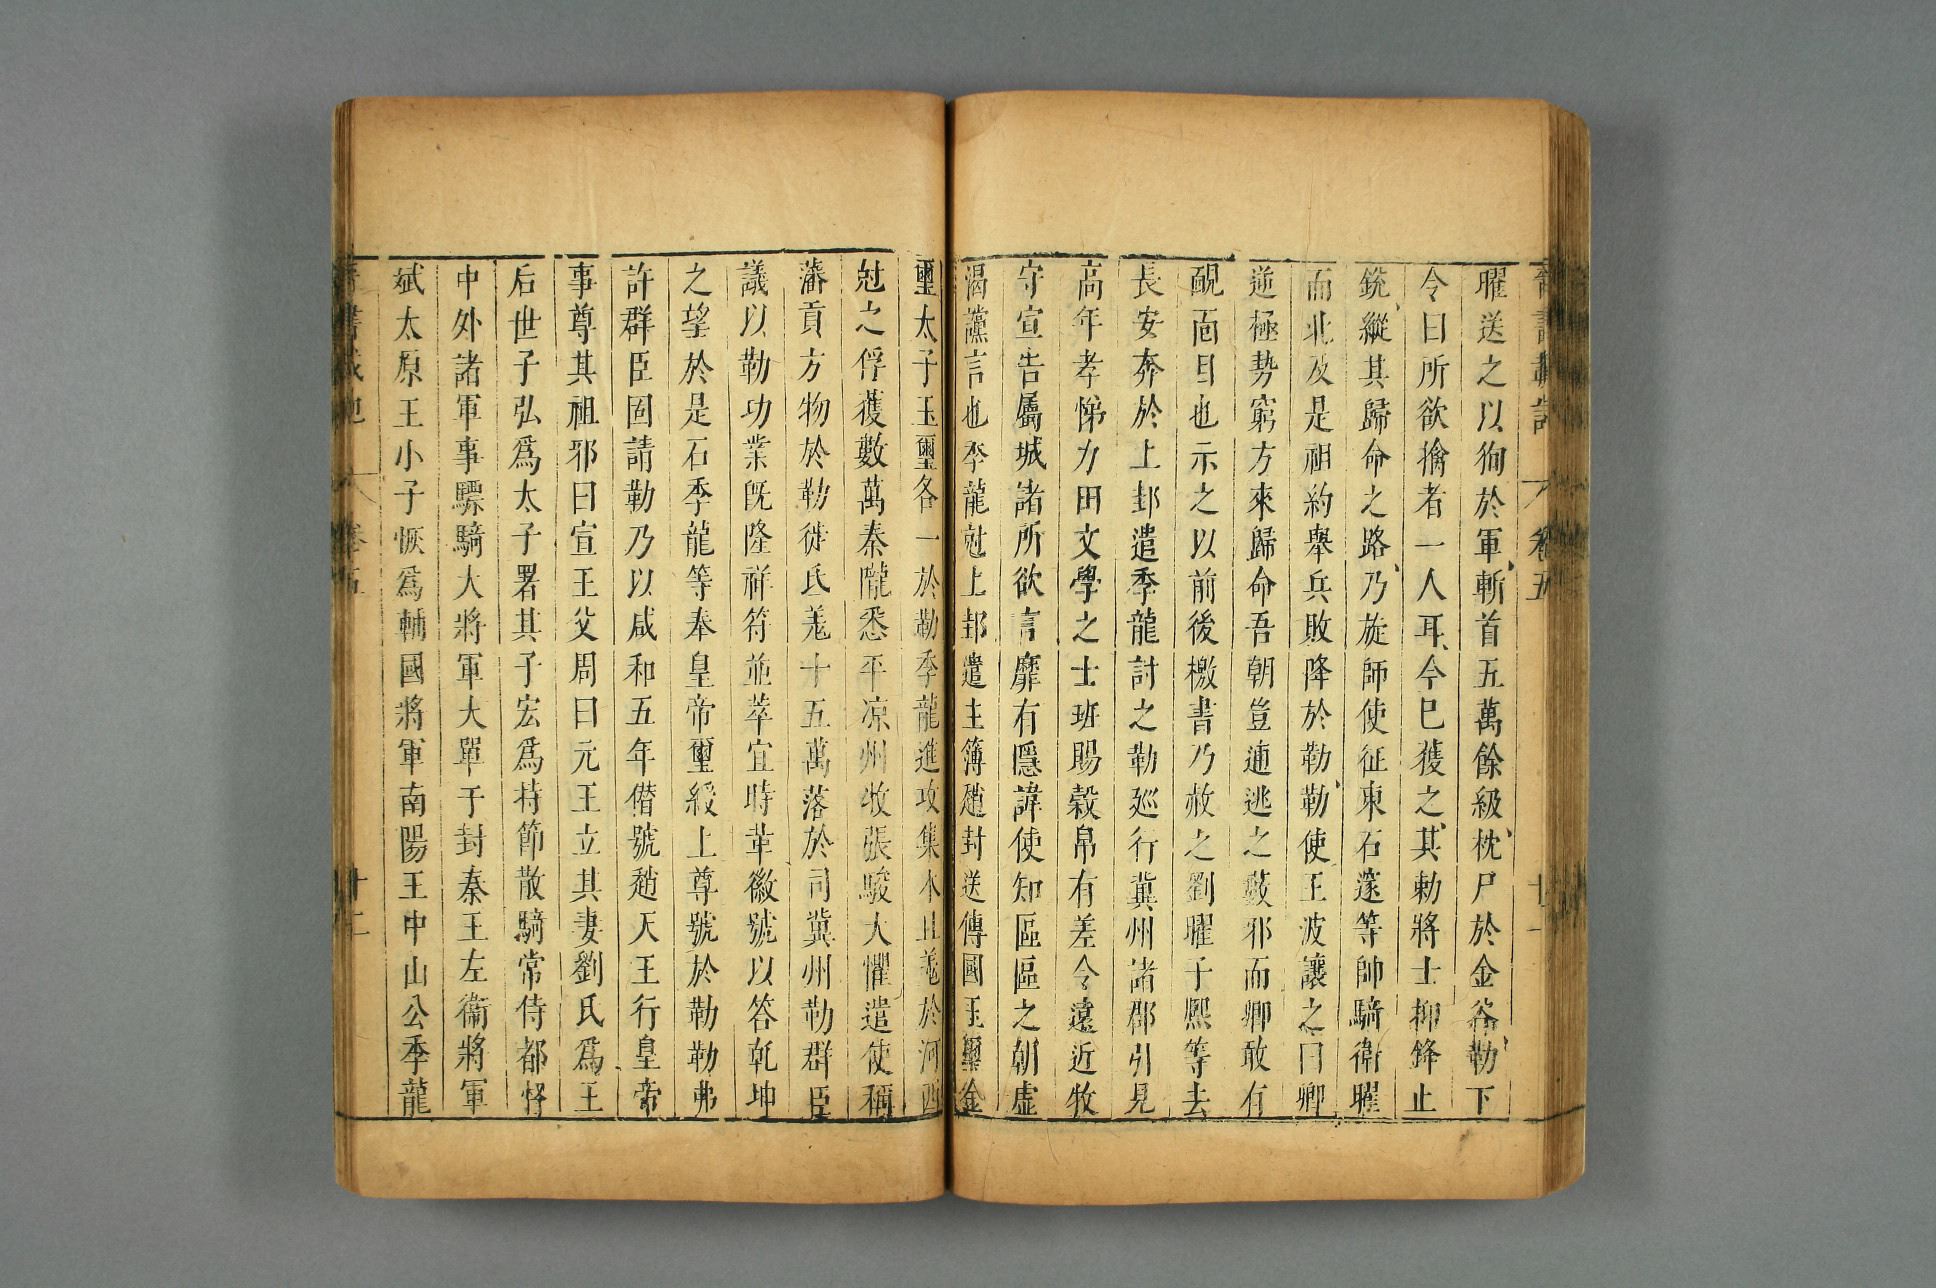 晉書載記 卷五 十一
曜送之以徇於軍斬首五萬餘級枕尸於金谷勒下
令曰所欲擒者一人耳今已獲之其勅將士抑鋒止
銳縱其歸命之路乃旋師使征東石邃等帥騎衛曜
而北及是祖約舉兵敗降於勒勒使王波讓之曰卿
逆極勢窮方來歸命吾朝豈逋逃之藪邪而卿敢有
靦面目也示之以前後檄書乃赦之劉曜子熙等去
長安奔於上邽遣季龍討之勒廵行冀州諸郡引見
高年孝悌力田文學之士班賜穀帛有差令遠近牧
守宣告屬城諸所欲言靡有隱諱使知區區之朝虛
渴讜言也季龍尅上邽遣主簿趙封送傳國玉璽金
璽太子玉璽各一於勒季龍進攻集木且羗於河西
尅之俘獲數萬秦隴悉平凉州牧張駿大懼遣使稱
藩貢方物於勒徙氐羗十五萬落於司冀州勒群臣
議以勒功業既隆祥符並萃宜時革徽號以答乾坤
之望於是石季龍等奉皇帝璽綬上尊號於勒勒弗
許群臣固請勒乃以咸和五年僭號趙天王行皇帝
事尊其祖邪曰宣王父周曰元王立其妻劉氏爲王
后世子弘爲太子署其子宏爲持節散騎常侍都督
中外諸軍事驃騎大將軍大單于封秦王左衞將軍
斌太原王小子恢爲輔國將軍南陽王中山公季龍
晉書載記 卷五 十二